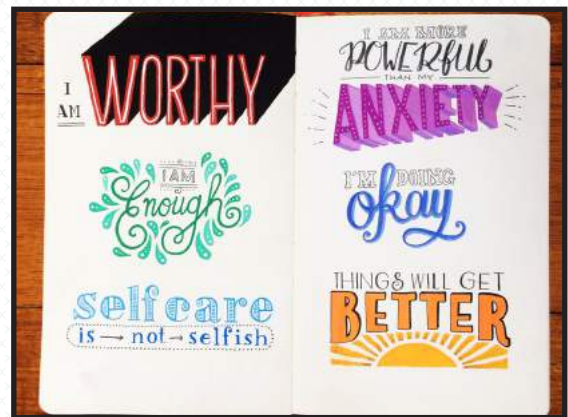 I
AM WORTHY
I AM
Enough
self care
is → not → selfish
I AM MORE
POWERfUL
THAN MY
ANXIETY
I'M DOING
okay
THINGS WILL GET
BETTER